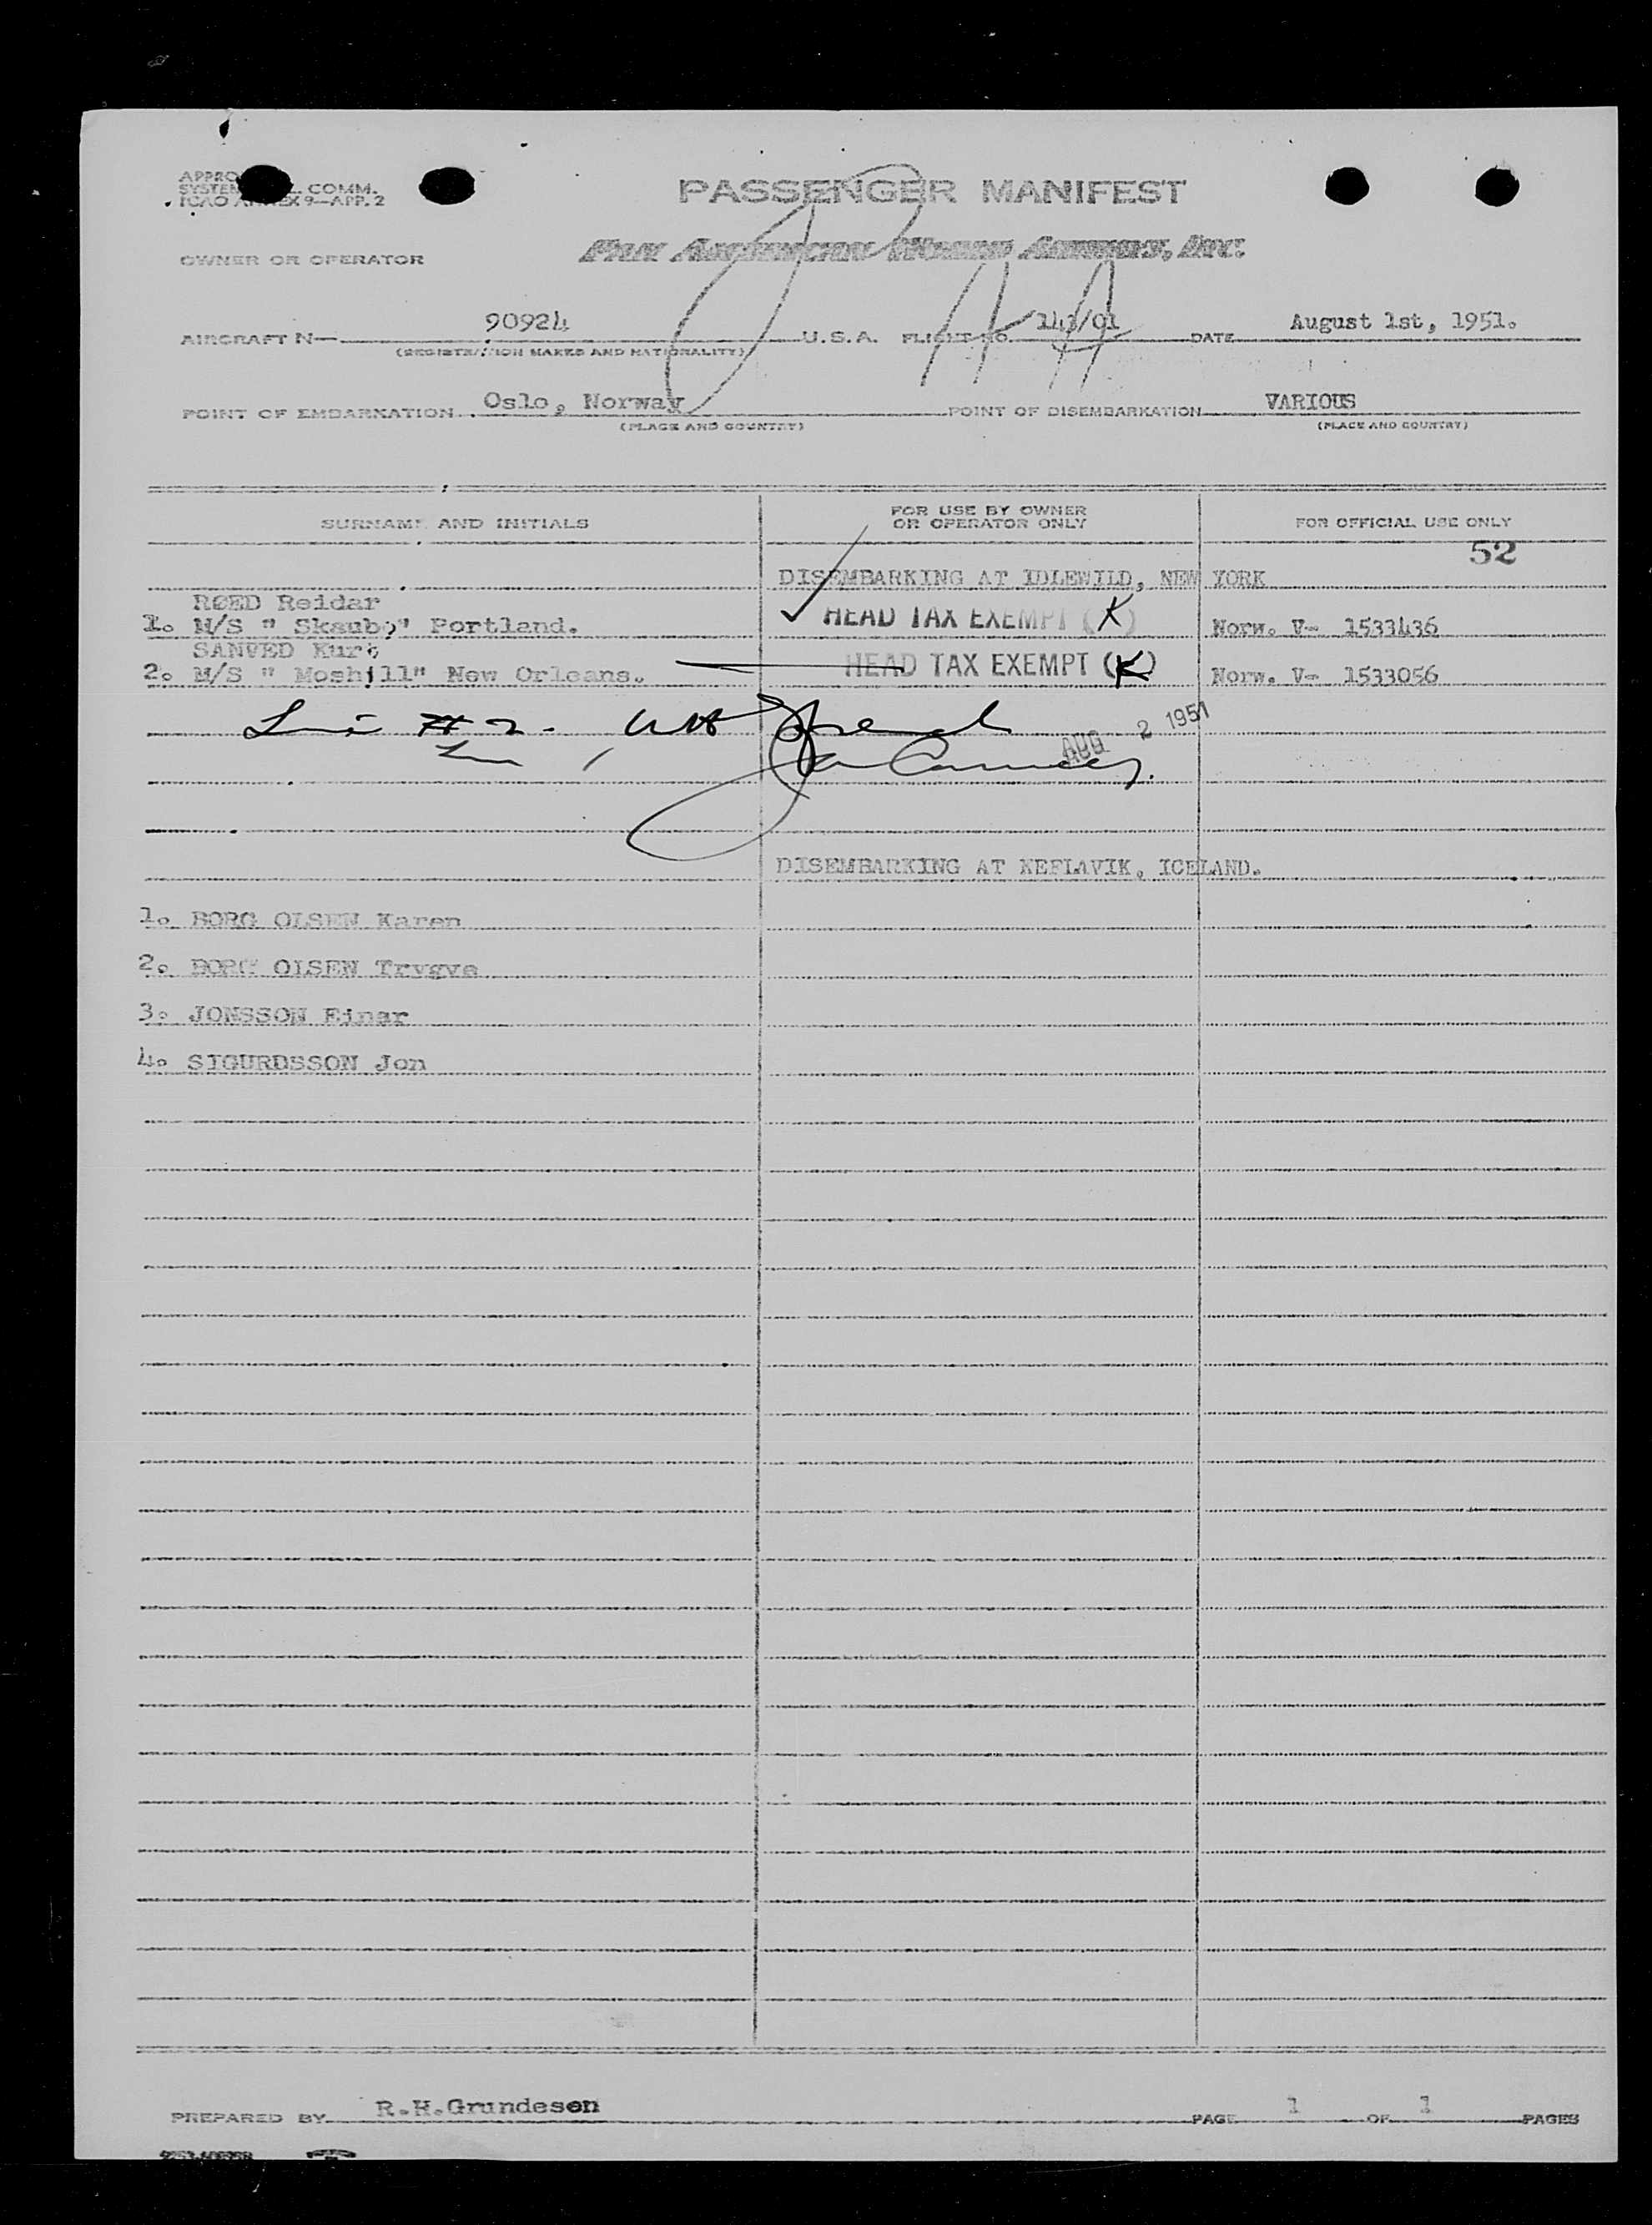 PASSENGER MANIFEST
L. COMM.
ICAO ANNEX 9—APP. 2
OWNER OR OPERATOR PAN AMERICAN WORLD AIRWAYS, INC.
AIRCRAFT N— 90924 U.S.A. FLIGHT NO. DATE August 1st, 1951.
(REGISTRATION MARKS AND NATIONALITY)
POINT OF EMBARKATION Oslo, Norway POINT OF DISEMBARKATION VARIOUS
(PLACE AND COUNTRY) (PLACE AND COUNTRY)
SURNAME AND INITIALS FOR USE BY OWNER OR OPERATOR ONLY FOR OFFICIAL USE ONLY
52
DISEMBARKING AT IDLEWILD, NEW YORK
RØED Reidar
1. M/S " Skaubo" Portland. HEAD TAX EXEMPT (K) Norw. V- 1533436
SANVED Kurt
2. M/S " Moshill" New Orleans. HEAD TAX EXEMPT (K) Norw. V- 1533056
Line #2
AUG 2 1951
DISEMBARKING AT KEFLAVIK, ICELAND.
1. BORG OLSEN Karen
2. BORG OLSEN Trygve
3. JONSSON Einar
4. SIGURDSSON Jon
PREPARED BY R.H.Grundesen PAGE 1 OF 1 PAGES